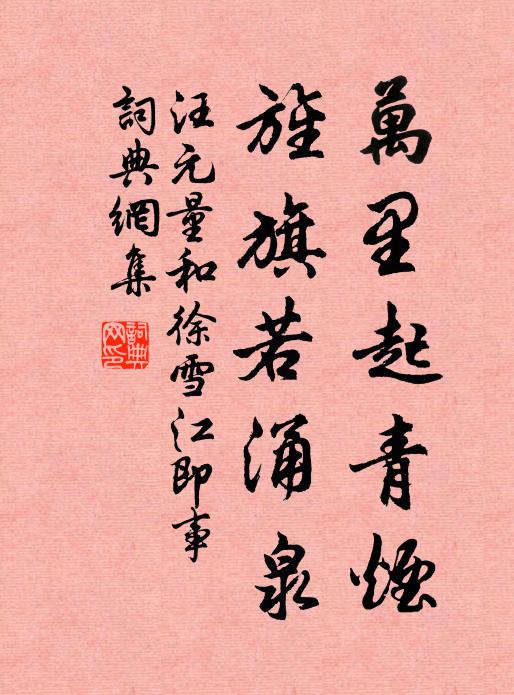 萬里起青煙
旌旗若涌泉
汪元量和徐雪江即事
詞典網集
詞典网印